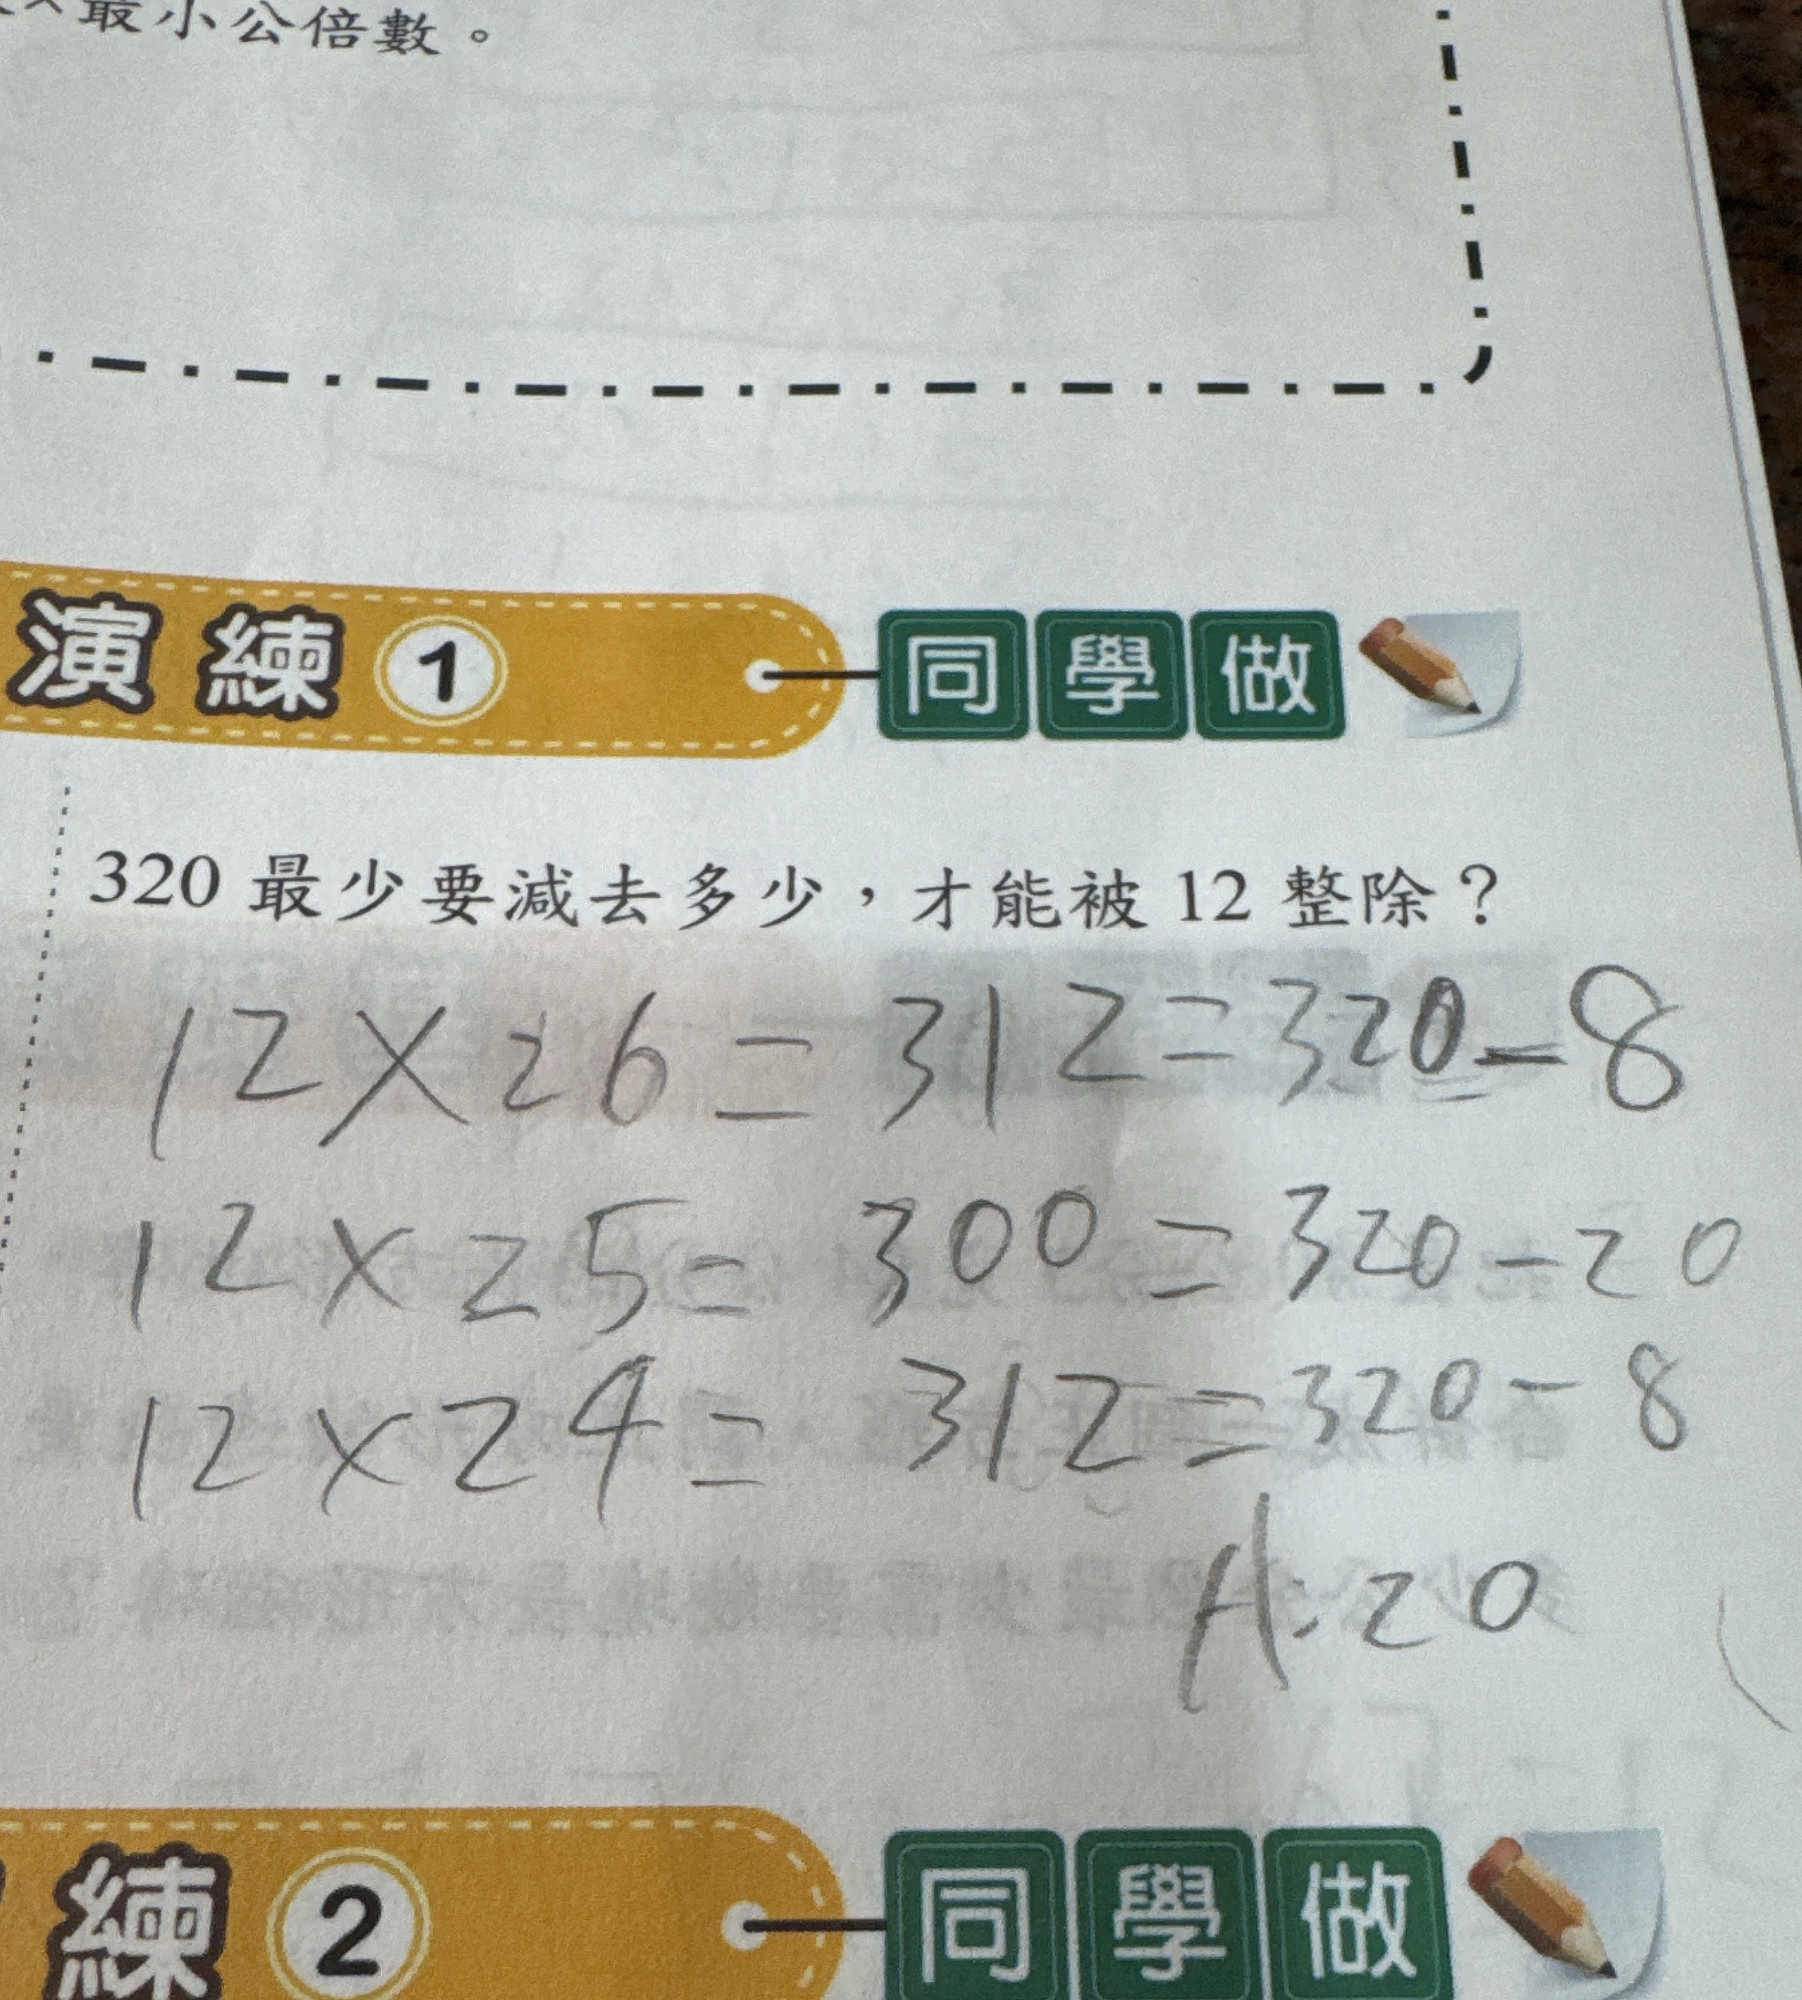 最小公倍數。
演練 1 同學做
320 最少要減去多少，才能被 12 整除？
12×26=312=320-8
12×25=300=320-20
12×24=312=320-8
A:20
練 2 同學做